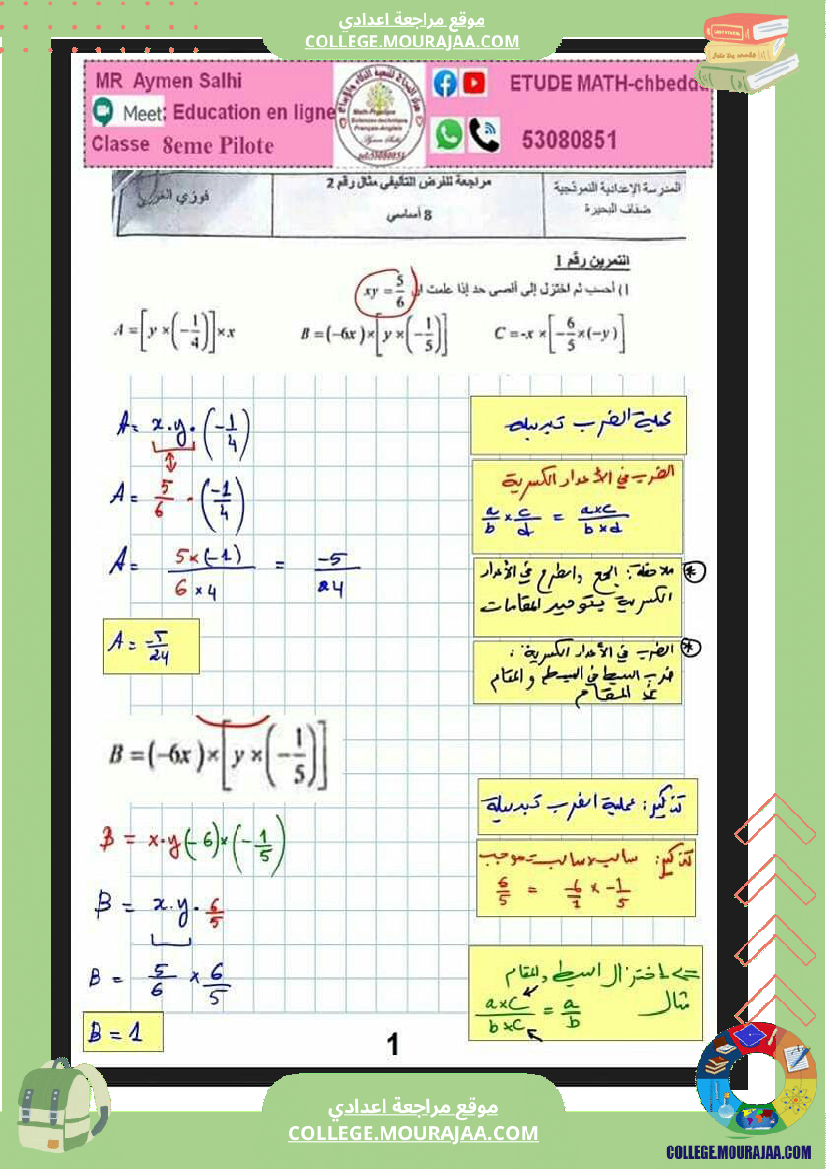 موقع مراجعة اعدادي
COLLEGE.MOURAJAA.COM
MR Aymen Salhi
Meet: Education en ligne
Classe 8eme Pilote
ETUDE MATH-chbedda
53080851
المدرسة الإعدادية النموذجية
ضفاف البحيرة
مراجعة للفرض التأليفي مثال رقم 2
8 أساسي
فوزي
التمرين رقم 1
1) أحسب ثم اختزل إلى أقصى حد إذا علمت ان xy = 5/6
A = [y × (-1/4)] × x
B = (-6x) × [y × (-1/5)]
C = -x × [-6/5 × (-y)]
A = x.y. (-1/4)
A = 5/6 . (-1/4)
A = 5×(-1) / 6×4 = -5/24
A = -5/24
عملية الضرب تبديلية
الضرب في الأعداد الكسرية
a/b × c/d = a×c / b×d
ملاحظة: الجمع والطرح في الأعداد
الكسرية بتوحيد المقامات
الضرب في الأعداد الكسرية:
ضرب البسط في البسط والمقام
في المقام
B = (-6x) × [y × (-1/5)]
B = x.y (-6) × (-1/5)
B = x.y. 6/5
B = 5/6 × 6/5
B = 1
تذكير: عملية الضرب تبديلية
تذكير: سالب × سالب = موجب
6/5 = -6/1 × -1/5
⇐ اختزال البسط والمقام
مثال
a×c / b×c = a/b
1
موقع مراجعة اعدادي
COLLEGE.MOURAJAA.COM
COLLEGE.MOURAJAA.COM